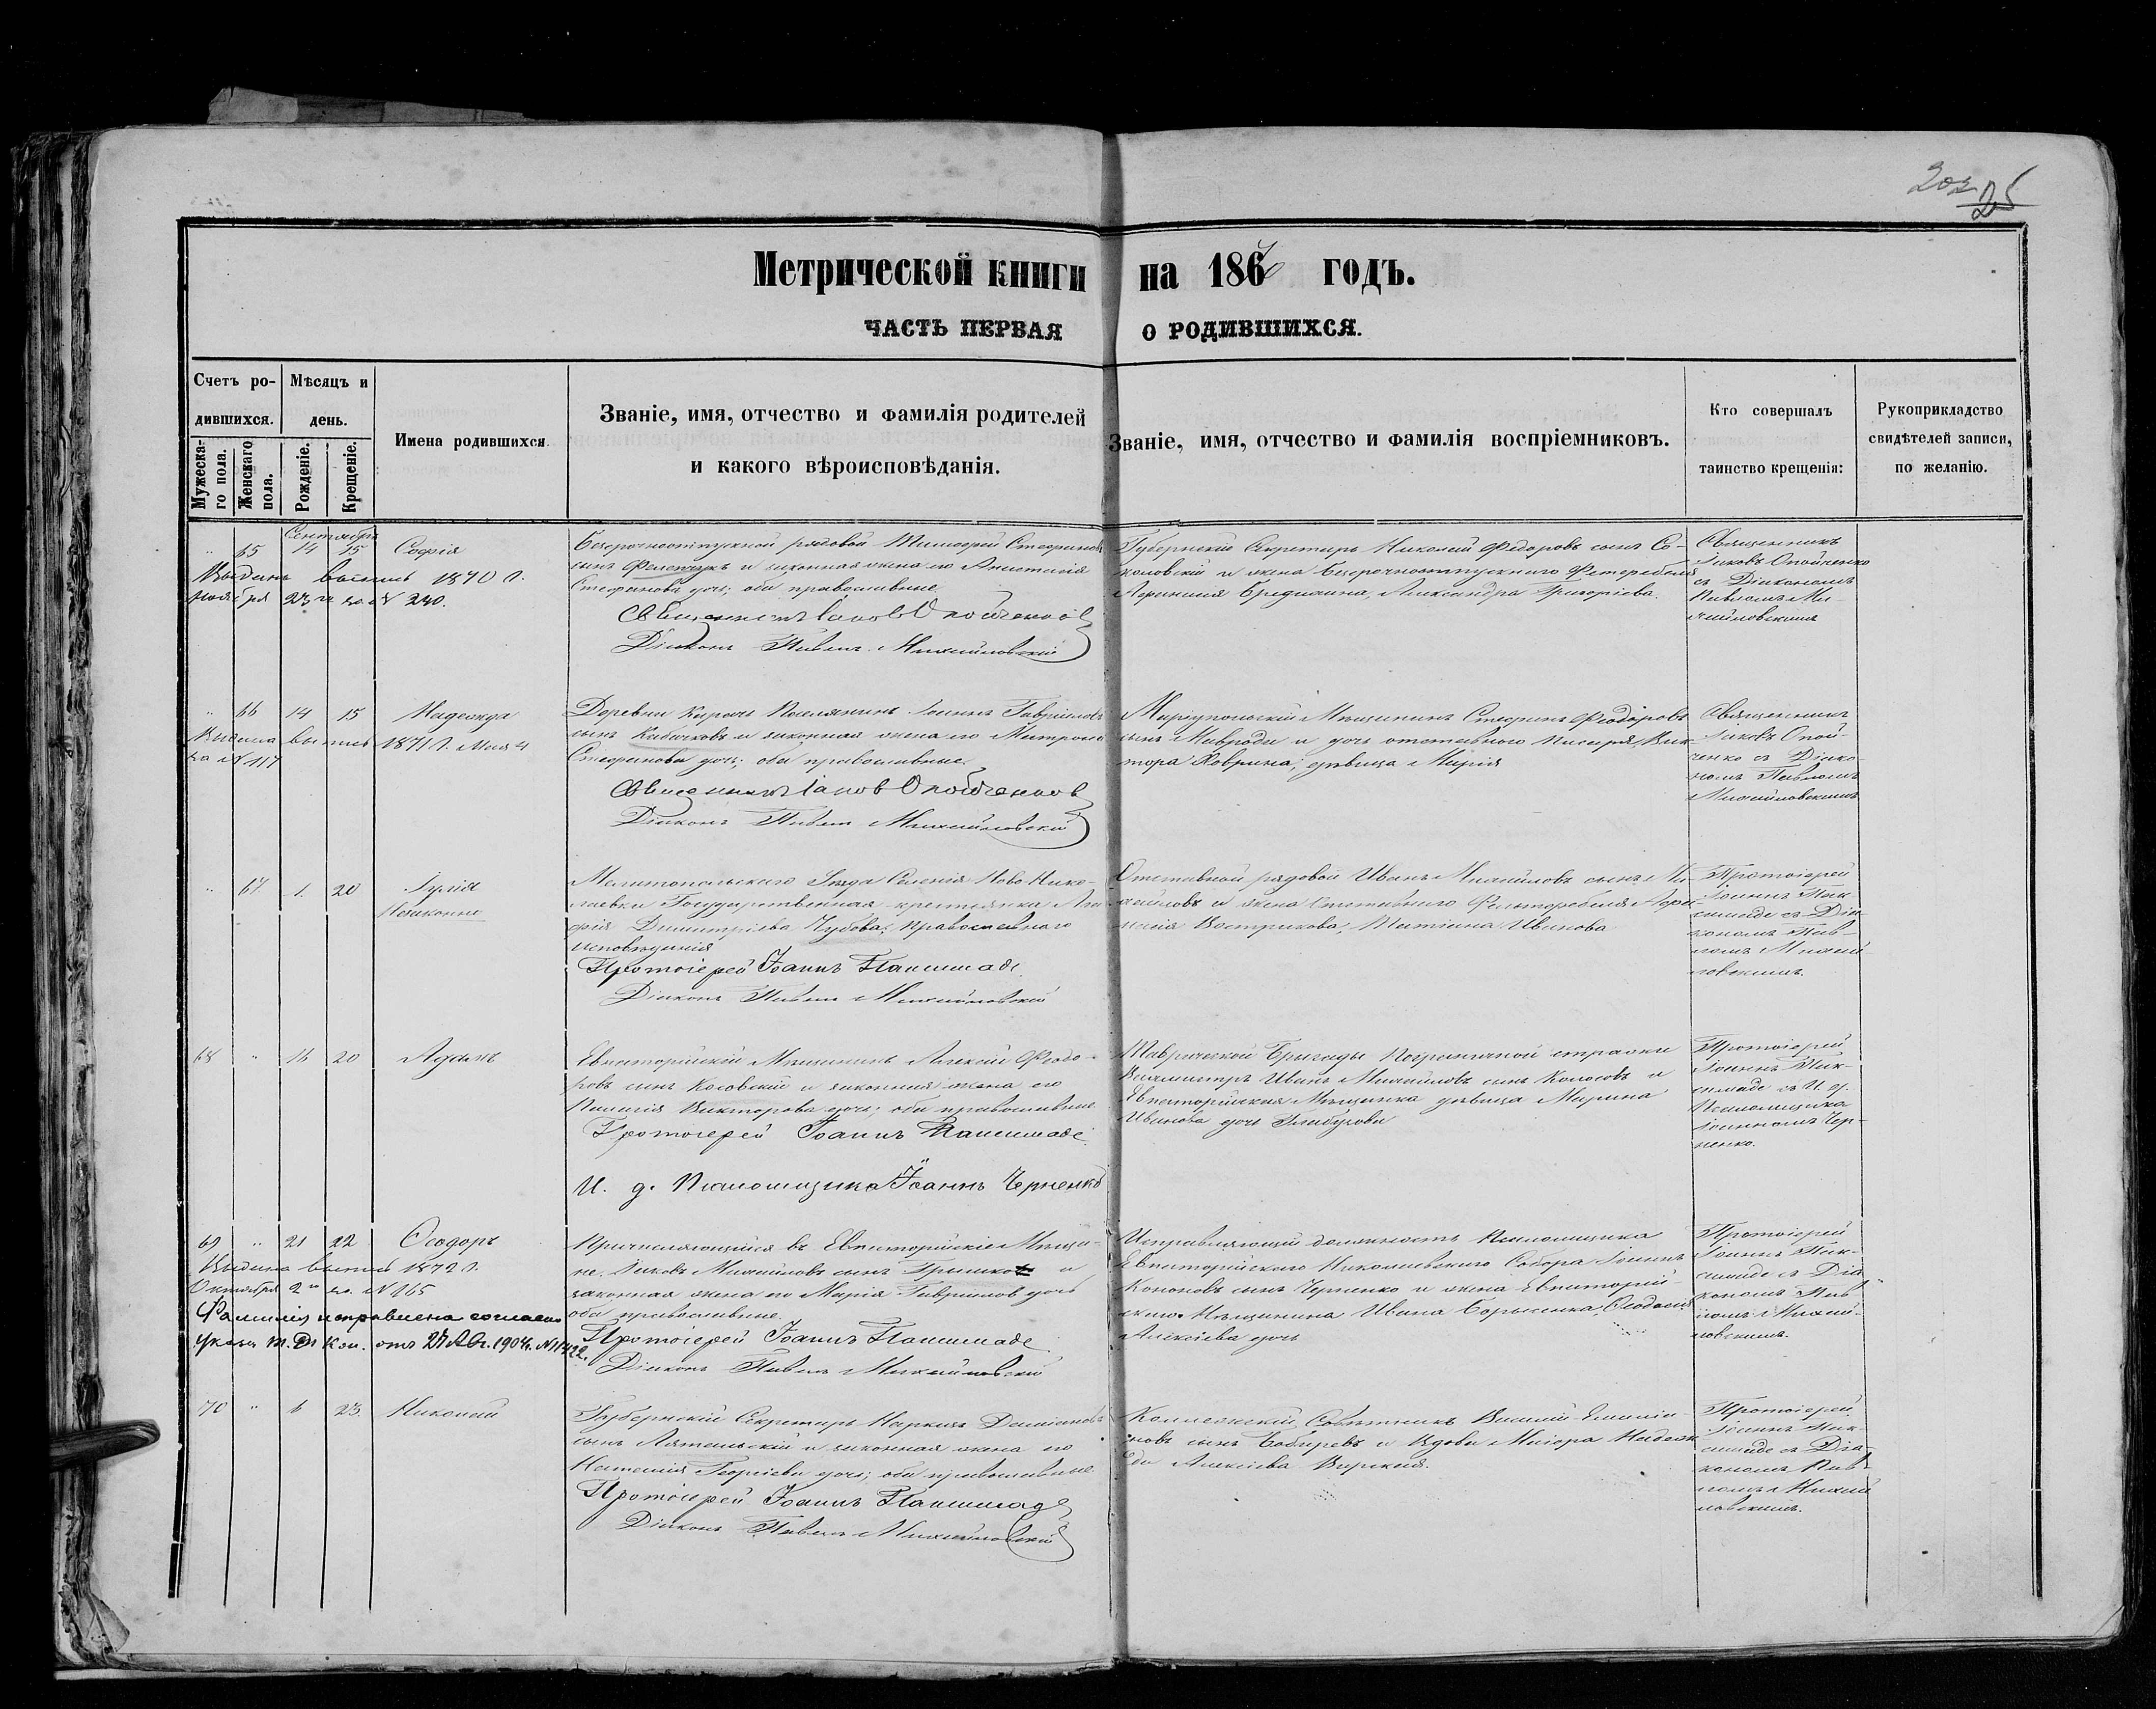 202 25
Метрической книги на 1870 годъ.
ЧАСТЬ ПЕРВАЯ О РОДИВШИХСЯ.
Счетъ ро-
дившихся.
Мужеска-
го пола.
Женскаго
пола.
Мѣсяцъ и
день.
Рожденіе.
Крещеніе.
Имена родившихся.
Званіе, имя, отчество и фамилія родителей
и какого вѣроисповѣданія.
Званіе, имя, отчество и фамилія воспріемниковъ.
Кто совершалъ
таинство крещенія:
Рукоприкладство
свидѣтелей записи,
по желанію.
Сентябрь
" 65 14 15 Софія
Выданъ выпись 1870 г.
Ноября 23 за № 240.
Безсрочноотпускной рядовой Тимофей Стефановъ
сынъ и законная жена его Анастасія
Стефанова дочь; оба православные.
Священникъ Іаковъ Опойченковъ
Діаконъ Павелъ Михайловскій
Губернскій Секретарь Николай Федоровъ сынъ Со-
коловскій и жена Безсрочноотпускного Фельдфебеля
Александра Григоріева.
Священникъ
Іаковъ Опойченко
съ Діакономъ
Павломъ Ми-
хайловскимъ
" 66 14 15 Надежда
Выдана выпись 1871 г. Мая 4
за № 117
Деревни Поселянинъ Іоаннъ Гавріиловъ
сынъ и законная жена его Матрона
Стефанова дочь; оба православные.
Священникъ Іаковъ Опойченковъ
Діаконъ Павелъ Михайловскій
Маріупольскій Мѣщанинъ Стефанъ Феодоровъ
сынъ Мавроди и дочь отставного писаря Вик-
тора Хаврина, дѣвица Марія
Священникъ
Іаковъ Опой-
ченко съ Діако-
номъ Павломъ
Михайловскимъ
" 67 1. 20
Незаконно
Мелитопольскаго Уѣзда Селенія Ново-Нико-
лаевки Государственная крестьянка Ага-
фія Димитріева Чубова; Православнаго
исповѣданія
Протоіерей Іоаннъ Паксимаде
Діаконъ Павелъ Михайловскій
Отставной рядовой Иванъ Михайловъ сынъ Ми-
хайловъ и жена Отставнаго Фельдфебеля
Вострикова, Татіана Иванова
Протоіерей
Іоаннъ Пак-
симаде съ Діа-
кономъ Пав-
ломъ Михай-
ловскимъ.
68 " 16 20 Адамъ
Евпаторійскій Мѣщанинъ Алексѣй Федо-
ровъ сынъ Косовскій и законная жена его
Пелагія Викторова дочь; оба православные
Протоіерей Іоаннъ Паксимаде
И. д. Псаломщика Іоаннъ Черненко
Таврической Бригады Пограничной стражи
Вахмистръ Иванъ Михайловъ сынъ Колосовъ и
Евпаторійская Мѣщанка дѣвица Марина
Иванова дочь
Протоіерей
Іоаннъ Пак-
симаде съ И. д.
Псаломщика
Іоанномъ Чер-
ненко.
69 " 21 22 Ѳеодоръ
Выдана выпись 1872 г.
Октября 2 за № 165
Фамилія исправлена согласно
указа Т. Д. Кон. отъ 27 Авг. 1904 г. № 11422.
Причисляющійся въ Евпаторійскіе Мѣща-
не Іаковъ Михайловъ сынъ Грышко и
законная жена его Марія Гавриилов дочь
оба православные.
Протоіерей Іоаннъ Паксимаде
Діаконъ Павелъ Михайловскій
Исправляющій должность Псаломщика
Евпаторійскаго Николаевскаго Собора Іоаннъ
Кононовъ сынъ Черненко и жена Евпаторій-
скаго Мѣщанина Ивана Борысенка, Ѳеодосія
Алексіева дочь
Протоіерей
Іоаннъ Пак-
симаде съ Діа-
кономъ Пав-
ломъ Михай-
ловскимъ.
70 " 6 23 Николай
Губернскій Секретарь Наркизъ Даміановъ
сынъ и законная жена его
Наталія Георгіева дочь; оба православные
Протоіерей Іоаннъ Паксимаде
Діаконъ Павелъ Михайловскій
Коллежскій Совѣтникъ Василій
сынъ и вдова Маіора Надеж-
да Алексіева
Протоіерей
Іоаннъ Пак-
симаде съ Діа-
кономъ Пав-
ломъ Михай-
ловскимъ.